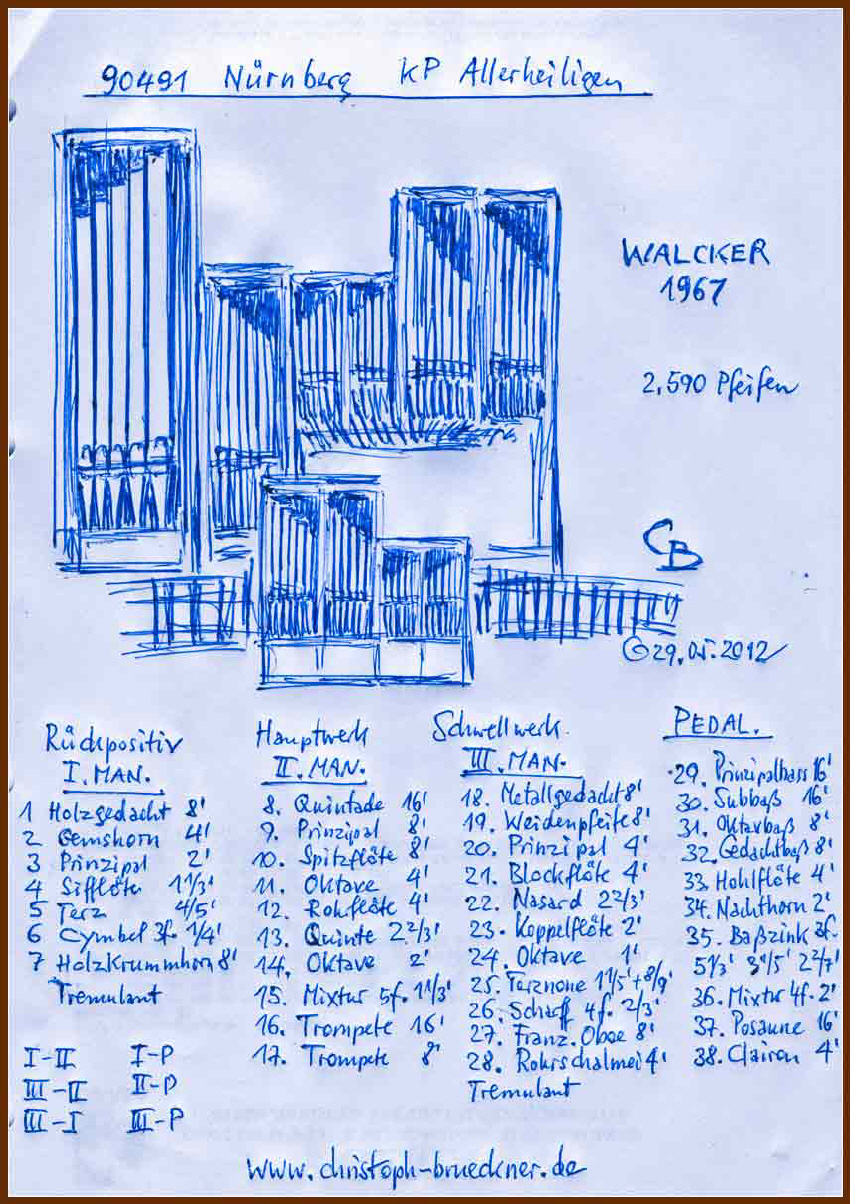 90491 Nürnberg KP Allerheiligen
WALCKER
1967
2.590 Pfeifen
CB
©29.05.2012
Rückpositiv
I. MAN.
1 Holzgedacht 8'
2 Gemshorn 4'
3 Prinzipal 2'
4 Sifflöte 1 1/3'
5 Terz 4/5'
6 Cymbel 3f. 1/4'
7 Holzkrummhorn 8'
Tremulant
I-II I-P
III-II II-P
III-I III-P
Hauptwerk
II. MAN.
8. Quintade 16'
9. Prinzipal 8'
10. Spitzflöte 8'
11. Oktave 4'
12. Rohrflöte 4'
13. Quinte 2 2/3'
14. Oktave 2'
15. Mixtur 5f. 1 1/3'
16. Trompete 16'
17. Trompete 8'
Schwellwerk
III. MAN.
18. Metallgedackt 8'
19. Weidenpfeife 8'
20. Prinzipal 4'
21. Blockflöte 4'
22. Nasard 2 2/3'
23. Koppelflöte 2'
24. Oktave 1'
25. Terznone 1 1/5' + 8/9'
26. Scharff 4f. 2/3'
27. Franz. Oboe 8'
28. Rohrschalmei 4'
Tremulant
PEDAL.
29. Prinzipalbass 16'
30. Subbaß 16'
31. Oktavbaß 8'
32. Gedachtbaß 8'
33. Hohlflöte 4'
34. Nachthorn 2'
35. Baßzink 3f.
5 1/3' 3 1/5' 2 2/7'
36. Mixtur 4f. 2'
37. Posaune 16'
38. Clairon 4'
www.christoph-brueckner.de